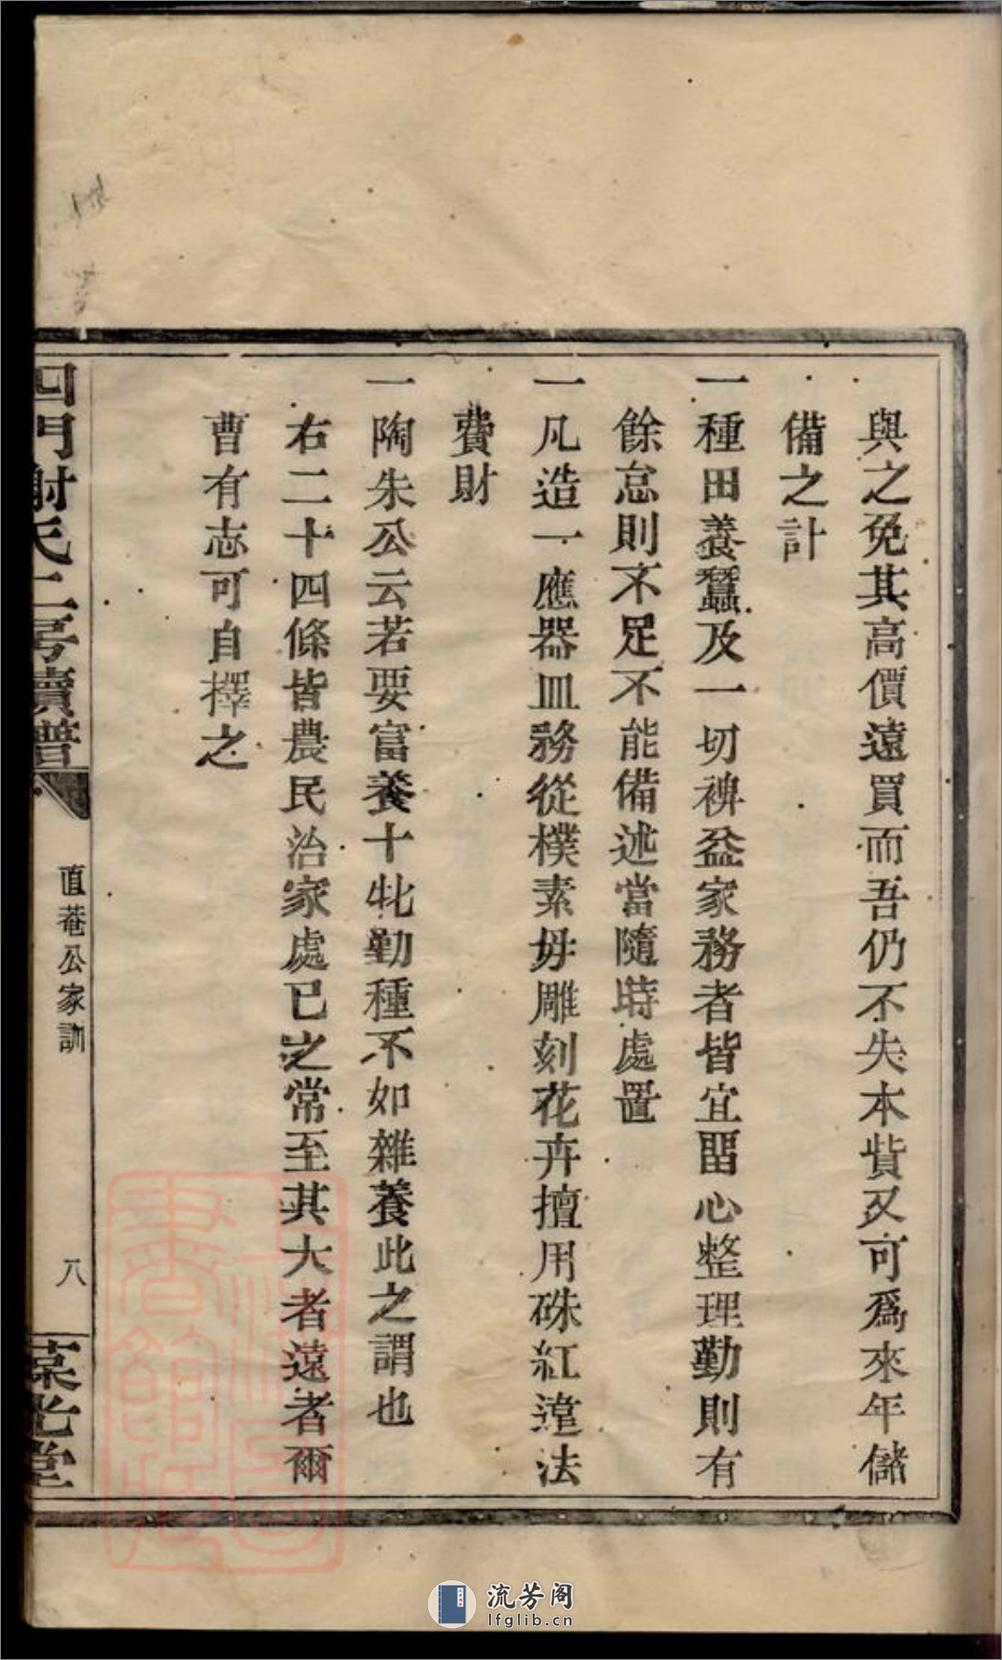 與之免其高價遠買而吾仍不失本貲又可爲來年儲
備之計
一種田養蠶及一切裨益家務者皆宜畱心整理勤則有
餘怠則不足不能備述當隨時處置
一凡造一應器皿務從樸素毋雕刻花卉擅用硃紅違法
費財
一陶朱公云若要富養十牝勤種不如雜養此之謂也
右二十四條皆農民治家處已之常至其大者遠者爾
曹有志可自擇之
四門謝氏二房續譜
直菴公家訓
八
流芳阁
lfglib.cn